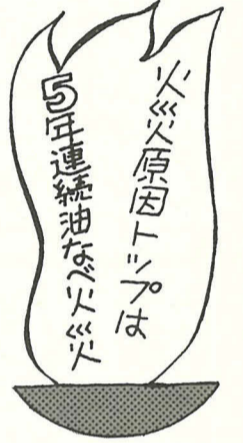 火災原因トップは
5年連続油なべ火災